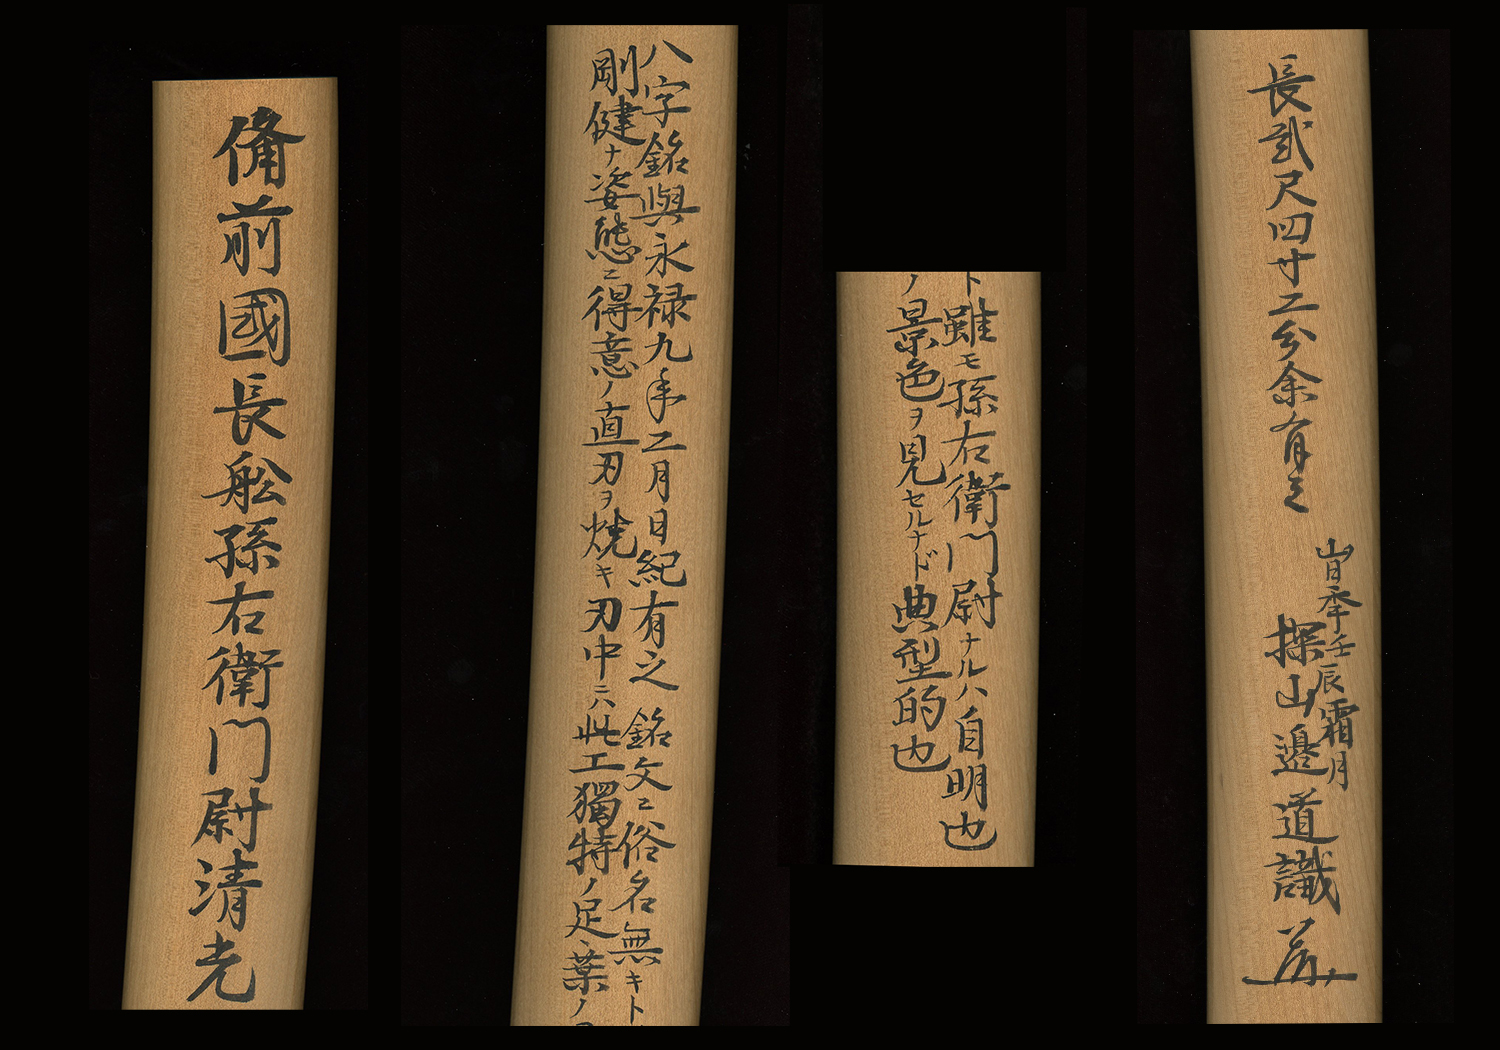 備前國長舩孫右衛門尉清光
八字銘與永禄九年二月日紀有之 銘文ニ俗名無キト
剛健ナ姿態ニ得意ノ直刃ヲ焼キ刃中ニハ此工獨特ノ足、葉ノ
ト雖モ孫右衛門尉ナルハ自明也
ノ景色ヲ見セルナド典型的也
長貳尺四寸二分余有之
旹昭和壬辰霜月
探山邉道識